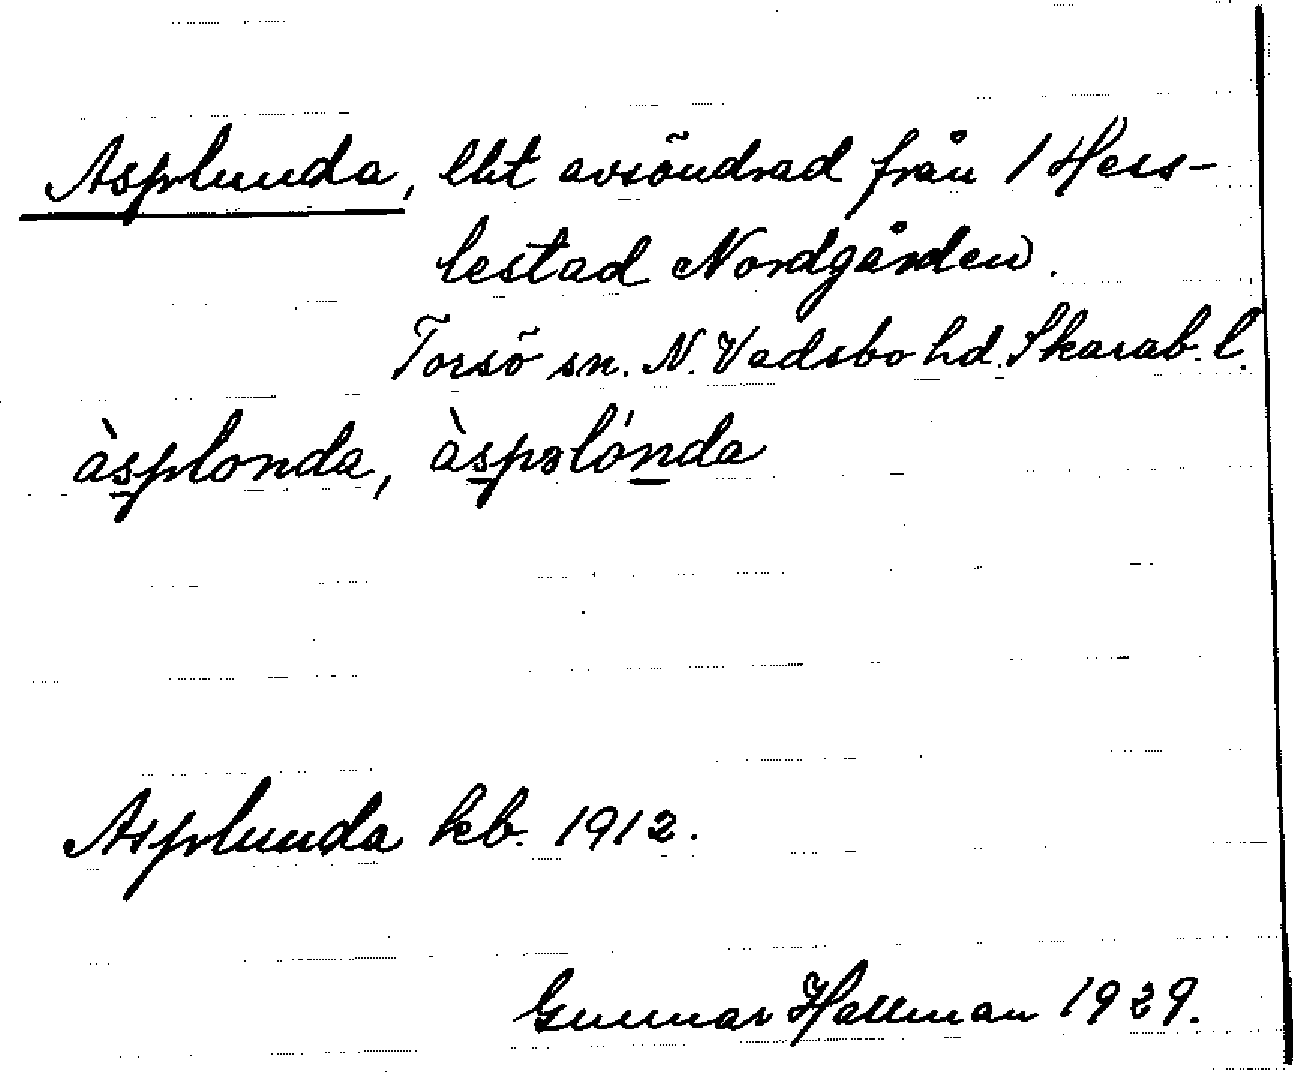 Asplunda, lht avsöndrad från 1 Hess-
lestad Nordgården.
Torsö sn. N. Vadsbo hd. Skarab. l.
àsplonda, àspəlónda
Asplunda kb. 1912.
Gunnar Hallman 1929.